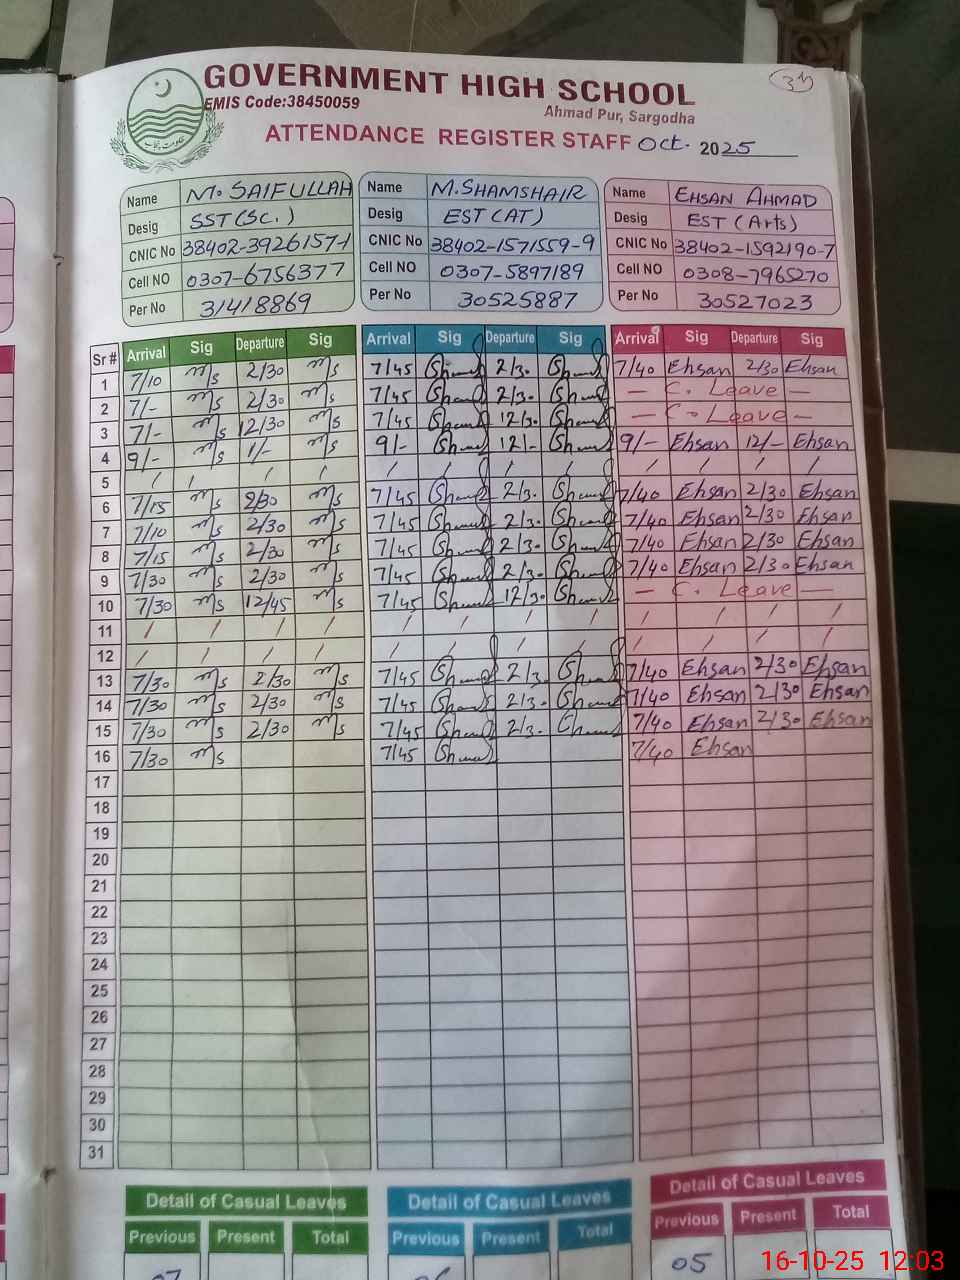 GOVERNMENT HIGH SCHOOL
EMIS Code:38450059
Ahmad Pur, Sargodha
ATTENDANCE REGISTER STAFF Oct. 2025
Name M. SAIFULLAH Name M. SHAMSHAIR Name EHSAN AHMAD
Desig SST(SC.) Desig EST(AT) Desig EST (Arts)
CNIC No 38402-3926157-1 CNIC No 38402-1571559-9 CNIC No 38402-1592190-7
Cell NO 0307-6756377 Cell NO 0307-5897189 Cell NO 0308-7965270
Per No 31418869 Per No 30525887 Per No 30527023
Sr # Arrival Sig Departure Sig Arrival Sig Departure Sig Arrival Sig Departure Sig
1 7/10 ms 2/30 ms 7/45 2/30 7/40 Ehsan 2/30 Ehsan
2 7/- ms 2/30 ms 7/45 2/30 — C. Leave —
3 7/- ms 12/30 ms 7/45 12/30 — C. Leave —
4 9/- ms 1/- ms 9/- 12/- 9/- Ehsan 12/- Ehsan
5 / / / / / / / / / / / /
6 7/15 ms 2/30 ms 7/45 2/30 7/40 Ehsan 2/30 Ehsan
7 7/10 ms 2/30 ms 7/45 2/30 7/40 Ehsan 2/30 Ehsan
8 7/15 ms 2/30 ms 7/45 2/30 7/40 Ehsan 2/30 Ehsan
9 7/30 ms 2/30 ms 7/45 2/30 7/40 Ehsan 2/30 Ehsan
10 7/30 ms 12/45 ms 7/45 12/30 — C. Leave —
11 / / / / / / / / / / / /
12 / / / / / / / / / / / /
13 7/30 ms 2/30 ms 7/45 2/30 7/40 Ehsan 2/30 Ehsan
14 7/30 ms 2/30 ms 7/45 2/30 7/40 Ehsan 2/30 Ehsan
15 7/30 ms 2/30 ms 7/45 2/30 7/40 Ehsan 2/30 Ehsan
16 7/30 ms 7/45 7/40 Ehsan
17
18
19
20
21
22
23
24
25
26
27
28
29
30
31
Detail of Casual Leaves Detail of Casual Leaves Detail of Casual Leaves
Previous Present Total Previous Present Total Previous Present Total
05
16-10-25 12:03